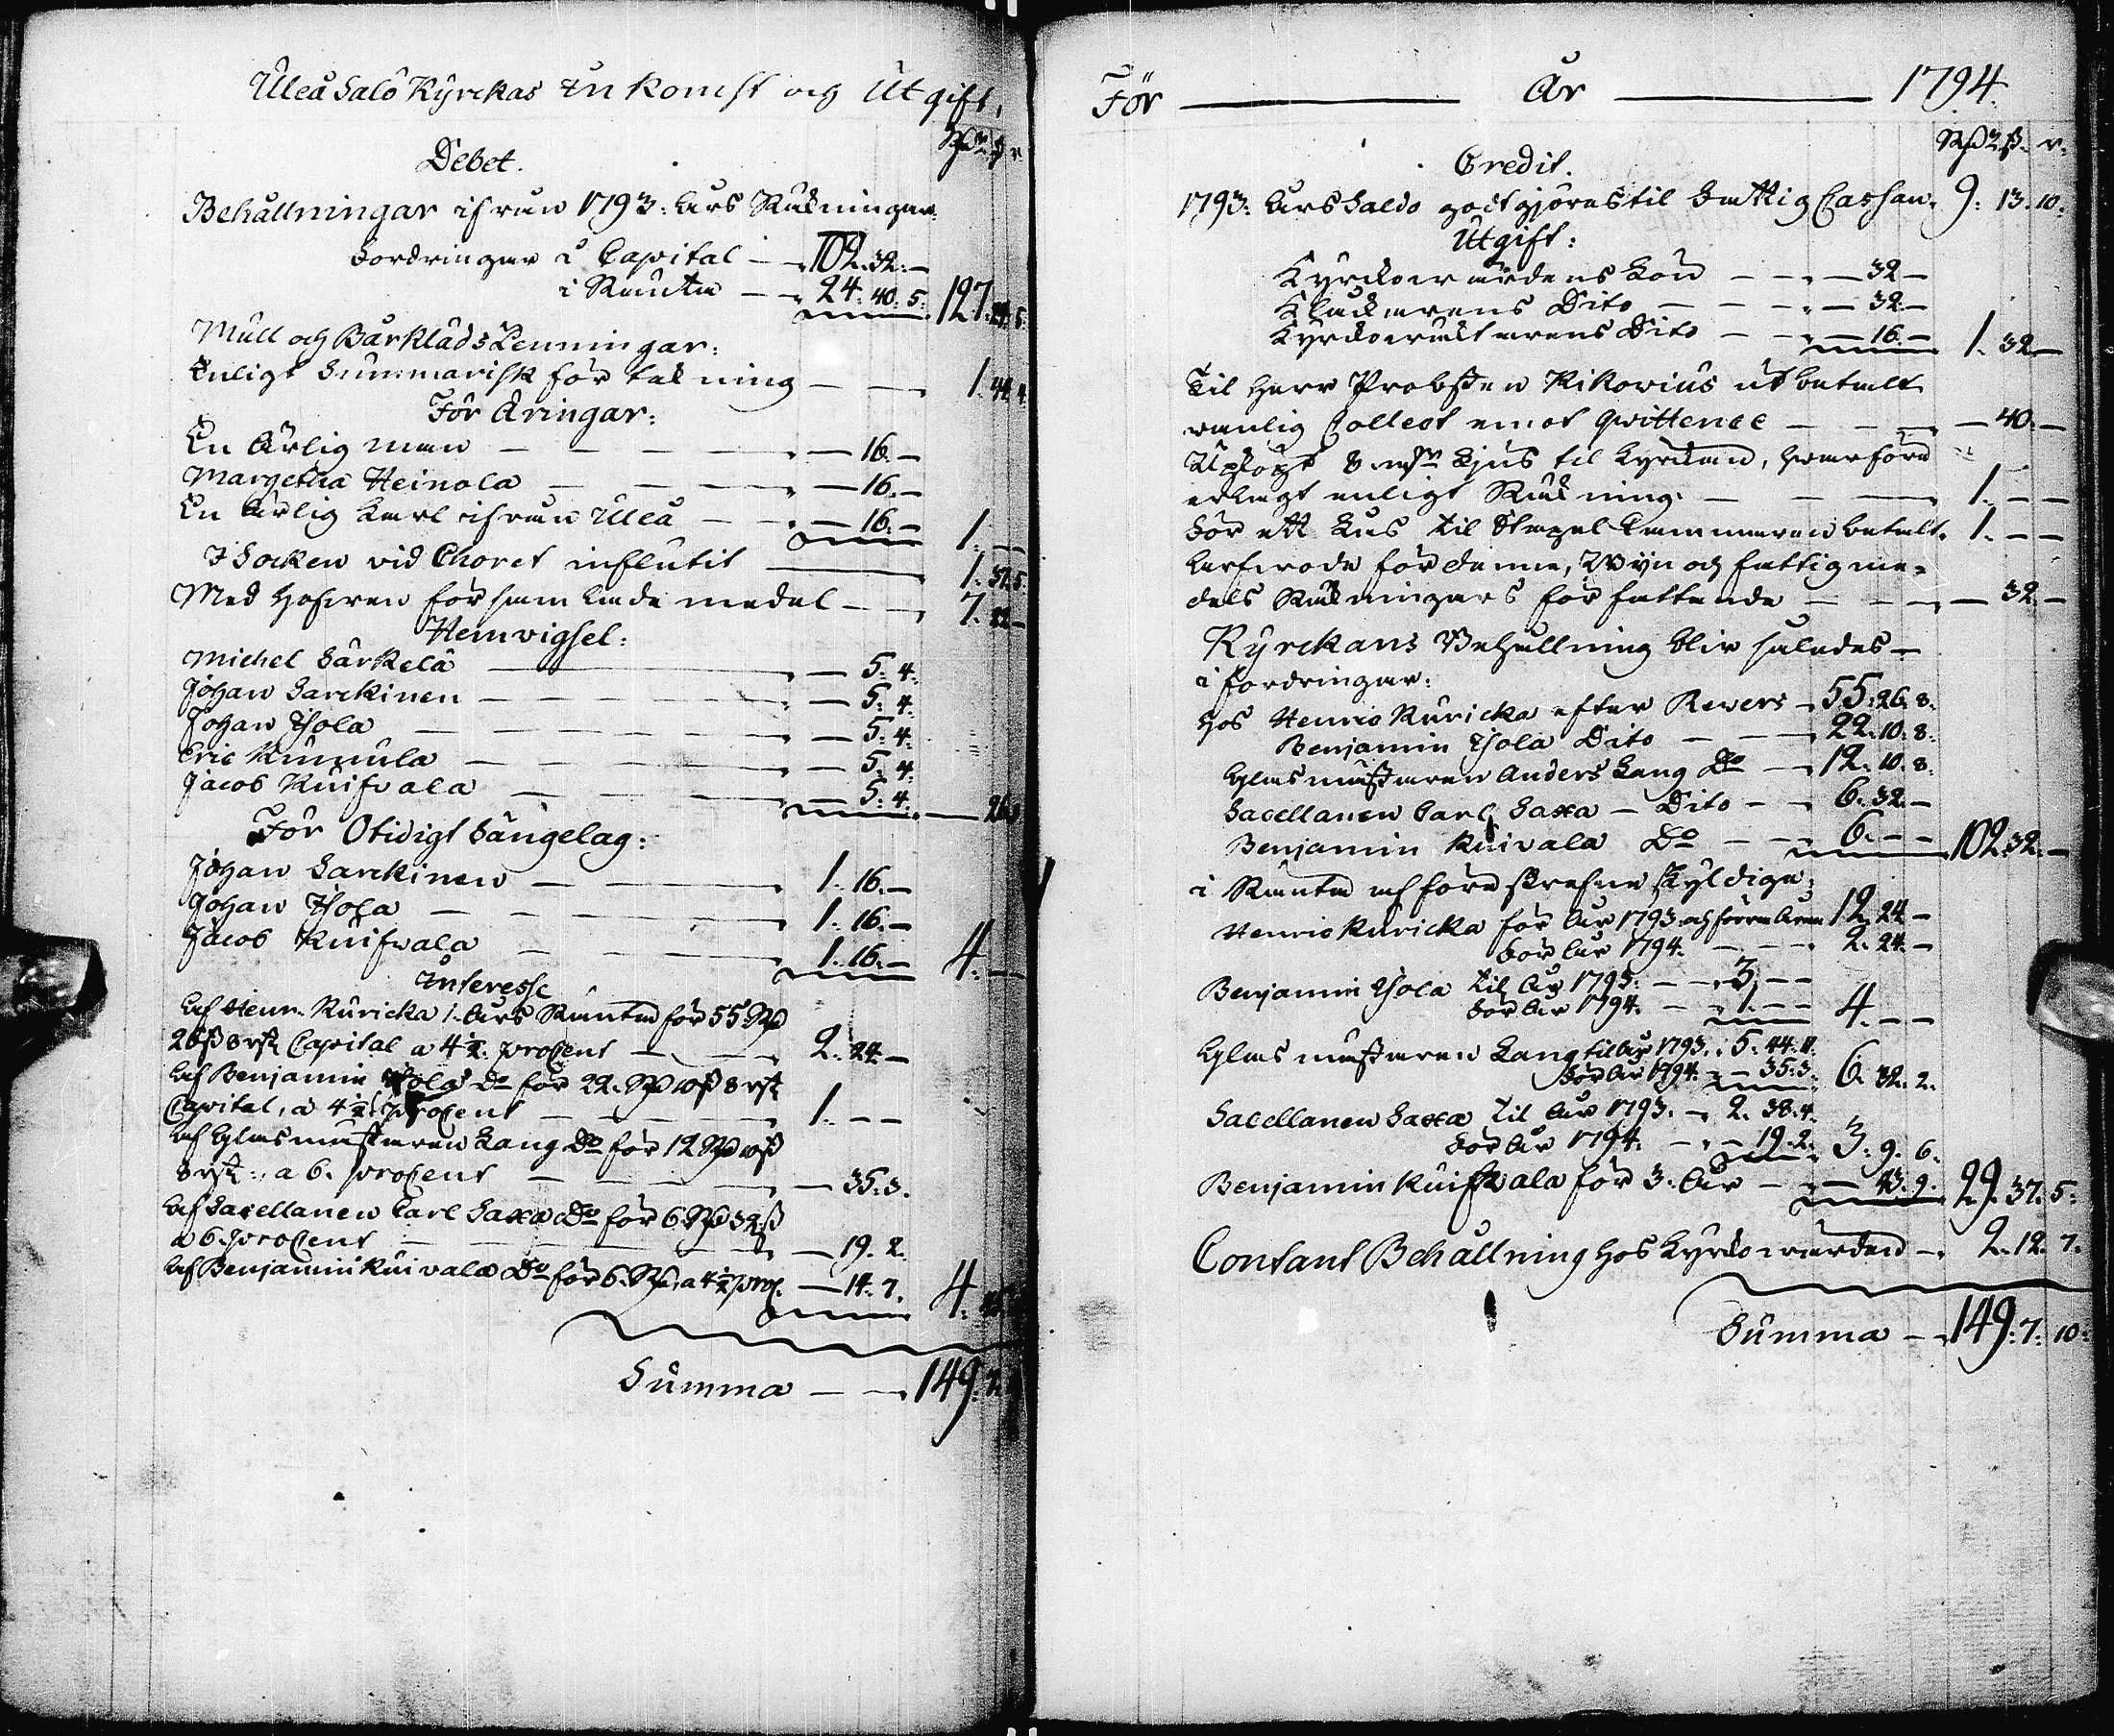 Uleå Salo Kyrckas Inkomst och Utgift,
Rd ß r
Debet.
Behållningar ifrån 1793: års Räkningar
Fordringar å Capital — 102. 32. —
i Ränta — 24. 40. 5. 127. 24. 5.
Mull och Bårkläds Penningar:
Enligt Summarisk förtekning — 1. 44. 4.
För Äringar:
En Ärlig man — 16. —
Margetha Heinola — 16. —
En Ärlig Karl ifrån Uleå — 16. — 1. — —
I Socken vid Choret influtit — 1. 37. 5.
Med Hofwen försam lade medel — 7. 22. —
Hemvigsel:
Michel Särkelä — 5. 4.
Johan Sarckinen — 5. 4.
Johan Isola — 5. 4.
Eric Kumula — 5. 4.
Jacob Kuifvala — 5. 4. — 26. 8
För Otidigt Sängelag:
Johan Sarckinen — 1. 16. —
Johan Isola — 1. 16. —
Jacob Kuifwala — 1. 16. — 4. —
Interesse
Af Henr. Kuricka 1. års Ränta för 55 Rd
26 ß 8 rst Capital a 4½ proCent — 2. 24. —
Af Benjamin Isola Do för 22. Rd 10 ß 8 rst
Capital, a 4½ proCent — 1. — —
Af Glasmästaren Lang Do för 12 Rd 10 ß
8 rst: a 6. proCent — 35. 3.
Af Sacellanen Carl Saxa Do för 6 Rd 32 ß
a 6 proCent — 19. 2.
Af Benjamin Kuivala Do för 6. Rd, a 4½ proC. — 14. 7. 4.
Summa — 149. 7.
För — År — 1794.
Rd ß. r.
Credit.
1793: års Saldo godtgjöres til Fattig Cassan. 9. 13. 10.
Utgift:
Kyrckowärdens Lön — 32 —
Klockarens Dito — 32 —
Kyrckowäktarens Dito — 16. — 1. 32 —
Til Herr Probsten Kikovius utbetalt
vanlig Collect emot qvittence — 40. —
Upköpt Ljus til Kyrckan, hvarföre
erlagt enligt Räkning — 1. — —
För ett Lås til Stapel Kammaren betalt. 1. — —
Arfwode för denne, Wijn och fattigme-
dels Räkningars författande — 32. —
Kyrckans Behållning blir således —
i fordringar:
hos Henric Kuricka efter Revers — 55. 26. 8.
Benjamin Isola Dito — 22. 10. 8.
Glasmästaren Anders Lang Do — 12. 10. 8.
Sacellanen Carl Saxa — Dito — 6. 32. —
Benjamin Kuivala Do — 6. — — 102. 32. —
i Ränta af föreskrefne skyldige:
Henric Kuricka för år 1793. och förra åren 12. 24 —
För år 1794. — 2. 24. —
Benjamin Isola til år 1793. — 3. — —
För år 1794. — 1. — — 4. — —
Glasmästaren Lang til år 1793. 5. 44. 11.
För år 1794. — 35. 3. 6. 32. 2.
Sacellanen Saxa til år 1793. — 2. 38. 4.
För år 1794. — 19. 2. 3. 9. 6.
Benjamin Kuifwala för 3. år — 43. 9. 29. 37. 5.
Contant Behållning hos Kyrckowärden — 2. 12. 7.
Summa — 149. 7. 10.